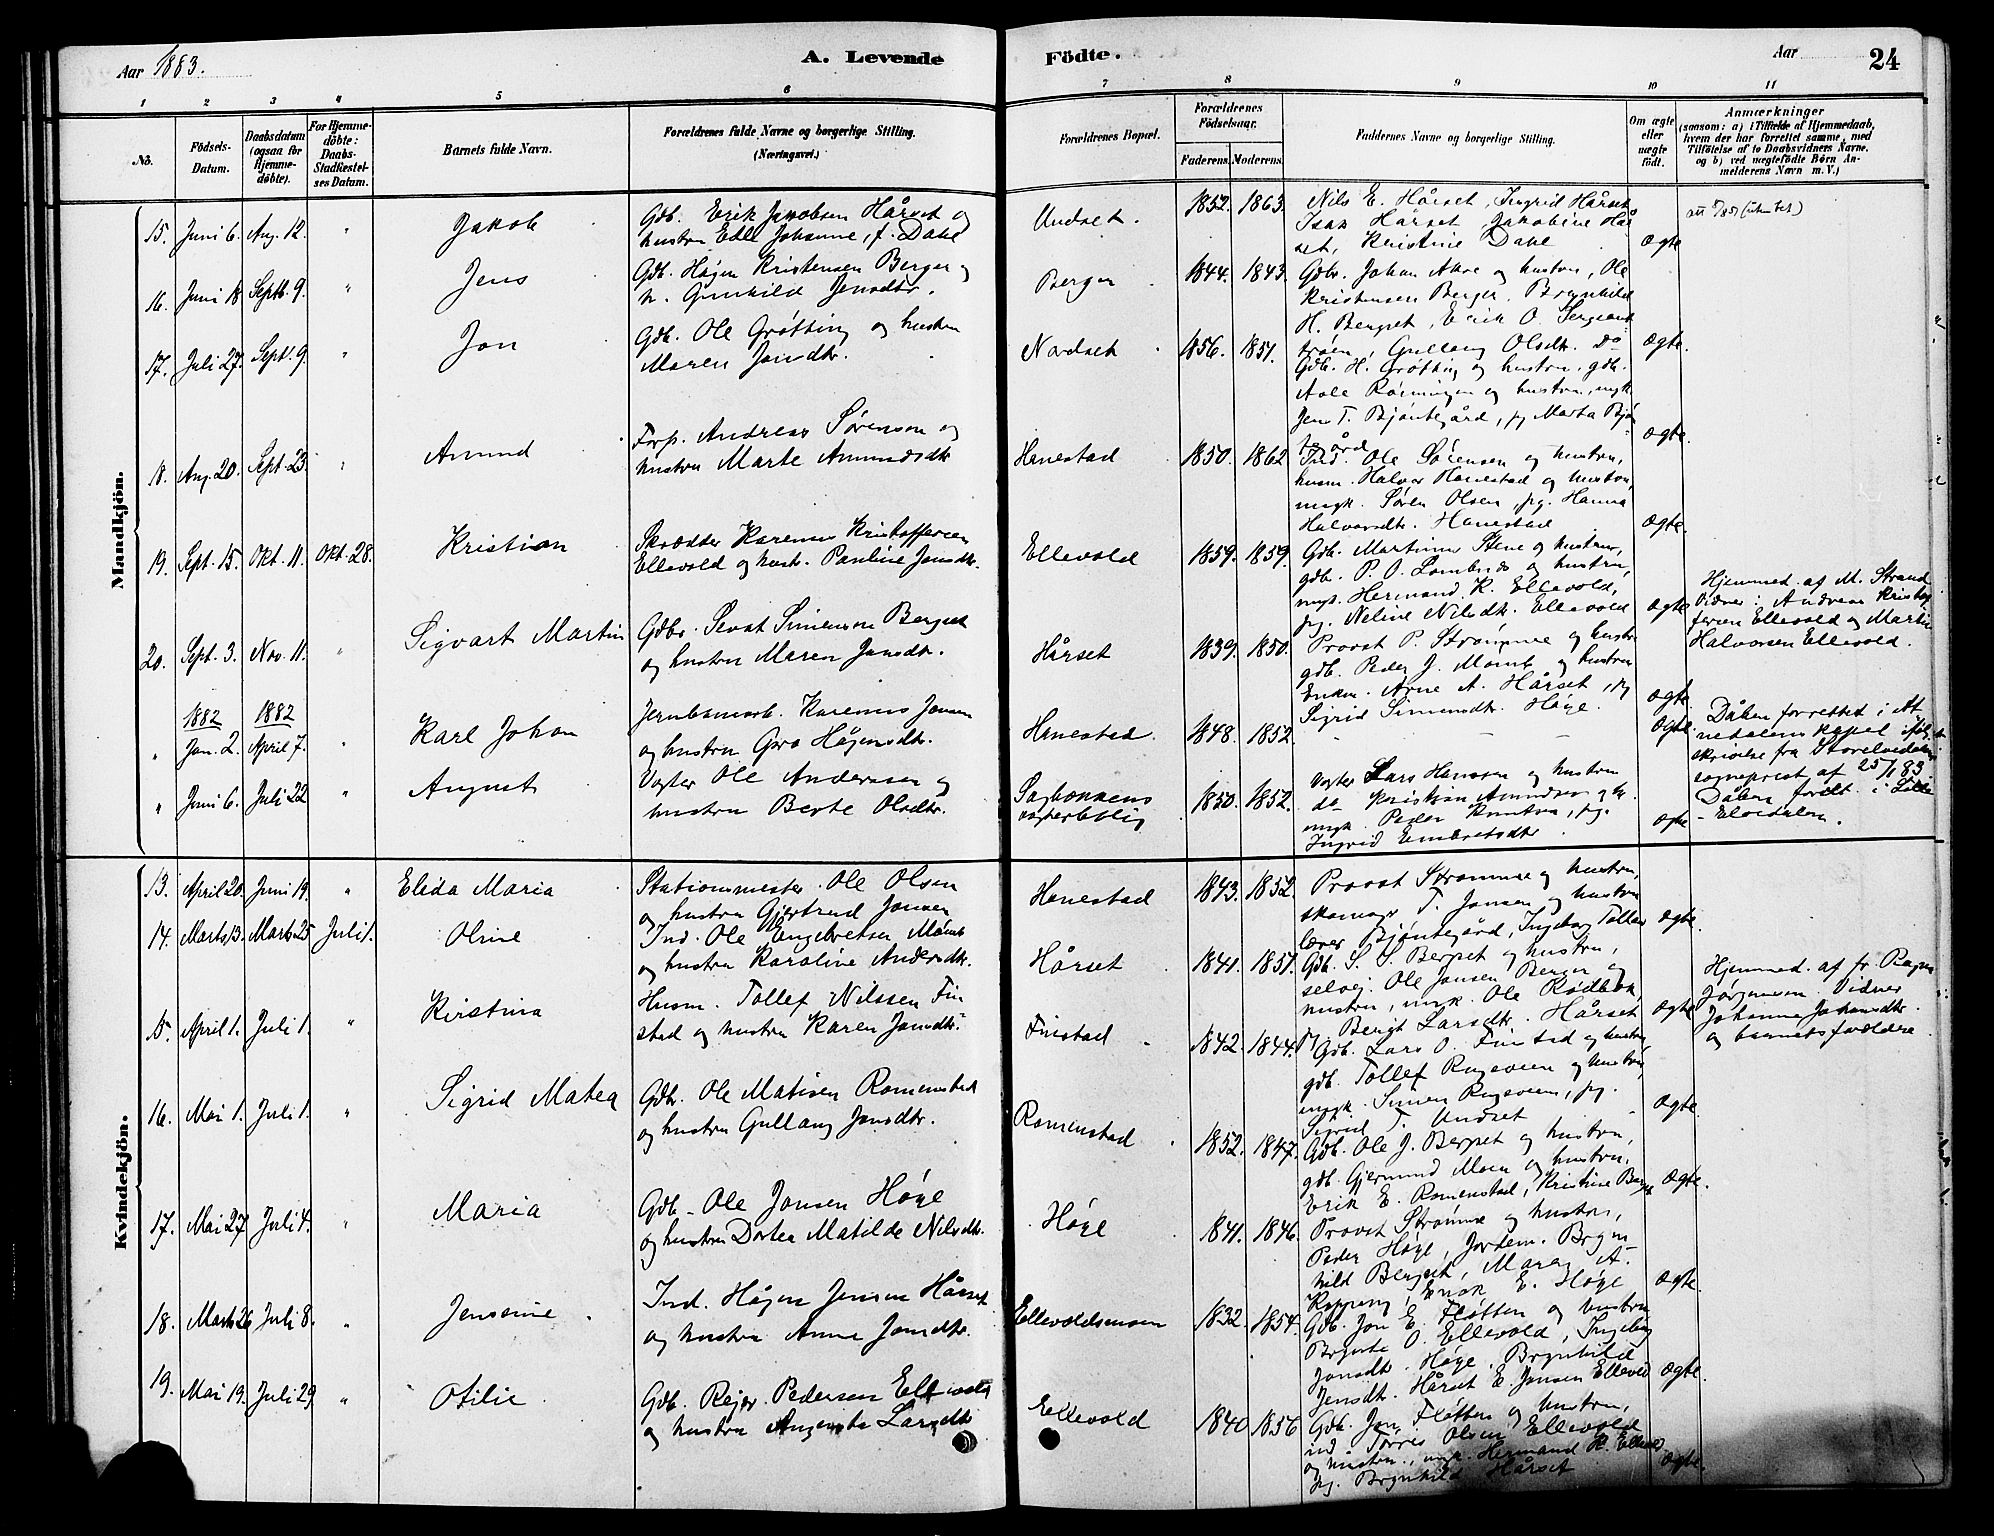 Aar 1883.
A. Levende
Födte.
Aar
24
1
2
3
4
5
6
7
8
9
10
11
No.
Födsels-
Datum.
Daabsdatum
(ogsaa for
Hjemme-
döbte).
For Hjemme-
döbte:
Daabs-
Stadfæstel-
ses Datum.
Barnets fulde Navn.
Forældrenes fulde Navne og borgerlige Stilling.
(Næringsvei.)
Forældrenes Bopæl.
Forældrenes
Födselsaar.
Faderens.
Moderens.
Faddernes Navne og borgerlige Stilling.
Om ægte
eller
uægte
födt.
Anmærkninger
(saasom: a) i Tilfælde af Hjemmedaab,
hvem der har forrettet samme, med
Tilföielse af to Daabsvidners Navne,
og b) ved uægtefödte Börn An-
melderens Navn m. V.)
Mandkjön.
15. Juni 6. Aug. 12. " Jakob
Gdb. Erik Jakobsen Hårset og
hustru Edle Johanne, f. Dahl
Undset. 1852. 1863.
Nils E. Hårset, Ingrid Hårset
Isak Hårset, Jakobine Hår
set, Kristine Dahl
Ægte
16. Juni 18. Septb. 9. " Jens
Gdb. Högen Kristensen Berger og
h. Gunhild Jensdtr.
Berger 1844. 1843.
Gdbr. Johan Akre og hustru, Ole
Kristensen Berger, Brynhild
H. Bergset, Erik O. Sergeant
trøen, Gullaug Olsdtr. do
Ægte.
17. Juli 27. Sept. 9. " Jon
Gdb. Ole Grøtting og hustru
Maren Jonsdtr.
Nordset 1856. 1851.
Gdb. H. Grøtting og hustru, gdb.
Aole Rönningen og hustru, ungk.
Jens T. Bjöntegård, pg Marta Bjön
tegård
Ægte.
18. Aug. 20. Sept. 23. " Amund
Forp. Andreas Sørensen og
hustru Marte Amundsdtr
Hanestad 1850. 1862
Ind. Ole Sørensen og hustru,
husm. Halvor Hanestad og hustru,
ungk. Søren Olsen, pg. Hanna
Halvorsdtr. Hanestad
Ægte.
19. Sept. 15. Okt. 11. Okt. 28. Kristian
Skrædder Karenus Kristoffersen
Ellevold og hustr. Pauline Jonsdtr.
Ellevold 1859. 1859.
Gdb. Martinus Stene og hustru,
gdb. P. O. Lombnæs og hustru,
ungk. Hermand K. Ellevold,
pg. Neline Nilsdtr. Ellevold
Ægte
Hjemmed. af M. Strand
Vidner: Andreas Kristof
fersen Ellevold og Martin
Halvorsen Ellevold.
20. Sept. 3. Nov. 11. " Sigvart Martin
Gdbr. Sivat Simensen Bergset
og hustru Maren Jonsdtr.
Hårset 1839. 1850.
Provst P. Strømme og hustru
gdb. Peder J. Momb og hustru
Enkem. Arne A. Hårset, pg
Sigrid Simensdtr. Høye.
Ægte
1882 1882
" Jan. 2. April 7. " Karl Johan
Jernbanearb. Karenus Jonsen
og hustru Gro Högensdtr.
Hanestad. 1848. 1852.
Ægte
Dåben forrettet i At
nedalens kapel ifølge
skrivelse fra Storelvedalens
sogneprest af 25/1 83.
" Juni 6. Juli 22 " August
Vogter Ole Andersen og
hustru Berte Olsdtr.
Sagbakkens
vogterbolig 1850. 1852.
Vogter Lars Hanssen og hustru
do Kristian Amundsen og h.
ungk. Peder Knutsen, pg.
Ingrid Embretsdtr
Ægte
Dåben forrett. i Lille
-Elvedalen.
Kvindekjön.
13. April 20. Juni 19. " Elida Maria
Stationsmester Ole Olsen
og hustru Gjertrud Jonsen
Hanestad 1843. 1852.
Provst Strømme og hustru,
skomager T. Jonsen og hustru
lærer Bjöntegård, Ingeborg Tollef
Ægte.
14. Marts 13. Marts 25 Juli 1. Oline
Ind. Ole Engebretsen Momb
og hustru Karoline Andersdtr.
Hårset 1841. 1851.
Gdb. S. S. Bergset og hustru,
selvej. Ole Jonsen Berger og
hustru, ungk. Ole Rødbæk
pg Bergt Larsdtr. Hårset
Ægte
Hjemmed. af fr. Ragna
Jørgensen. Vidner
Johanna Johansdtr.
og barnets forældre
15. April 1. Juli 1. " Kirstina
Husm. Tollef Nilssen Fin
stad og hustru Karen Jonsdtr.
Finstad 1842. 1844.
Gdb. Lars O. Finstad og hustru,
gdb. Tollef Rugsveen og hustru,
ungk. Simen Rugsveen, pg.
Sigrid T. Undset
Ægte
16. Mai 1. Juli 1. " Sigrid Matea
Gdb. Ole Matisen Romenstad
og hustru Gullaug Jonsdtr.
Romenstad 1852. 1847.
Gdb. Ole J. Bergset og hustru,
gdb. Gjermund Moen og hustru,
Erik E. Romenstad, Kristine Berget
Ægte.
17. Mai 27 Juli 4. " Maria
Gdb. Ole Jonsen Høye
og hustru Dortea Matilde Nilsdtr.
Høye 1841. 1846.
Provst Strømme og hustru,
Peder Høye, Jordem. Bryn
hild Bergset, Maren A.
Koppang, Erik E. Høye
Ægte
18. Marts 26 Juli 8. " Jensine
Ind. Högen Jensen Hårset
og hustru Anne Jonsdtr.
Ellevoldsmoen 1832. 1854.
Gdb. Jon E. Fløtten og hustru
Brynte O. Ellevold, Ingeborg
Jonsdtr. Høye, Brynhild
Jensdtr. Hårset E. Jonsen Ellevold
Ægte.
19. Mai 19. Juli 29. " Otilie
Gdb. Rejer Pedersen Ellevold
og hustru Augusta Larsdtr
Ellevold 1840 1856
Gdb. Jon Fløtten og hustru,
ind Torris Olsen Ellevold
og hustru, ungk. Hermand K. Ellevold
pg. Brynhild Hårset
Ægte.